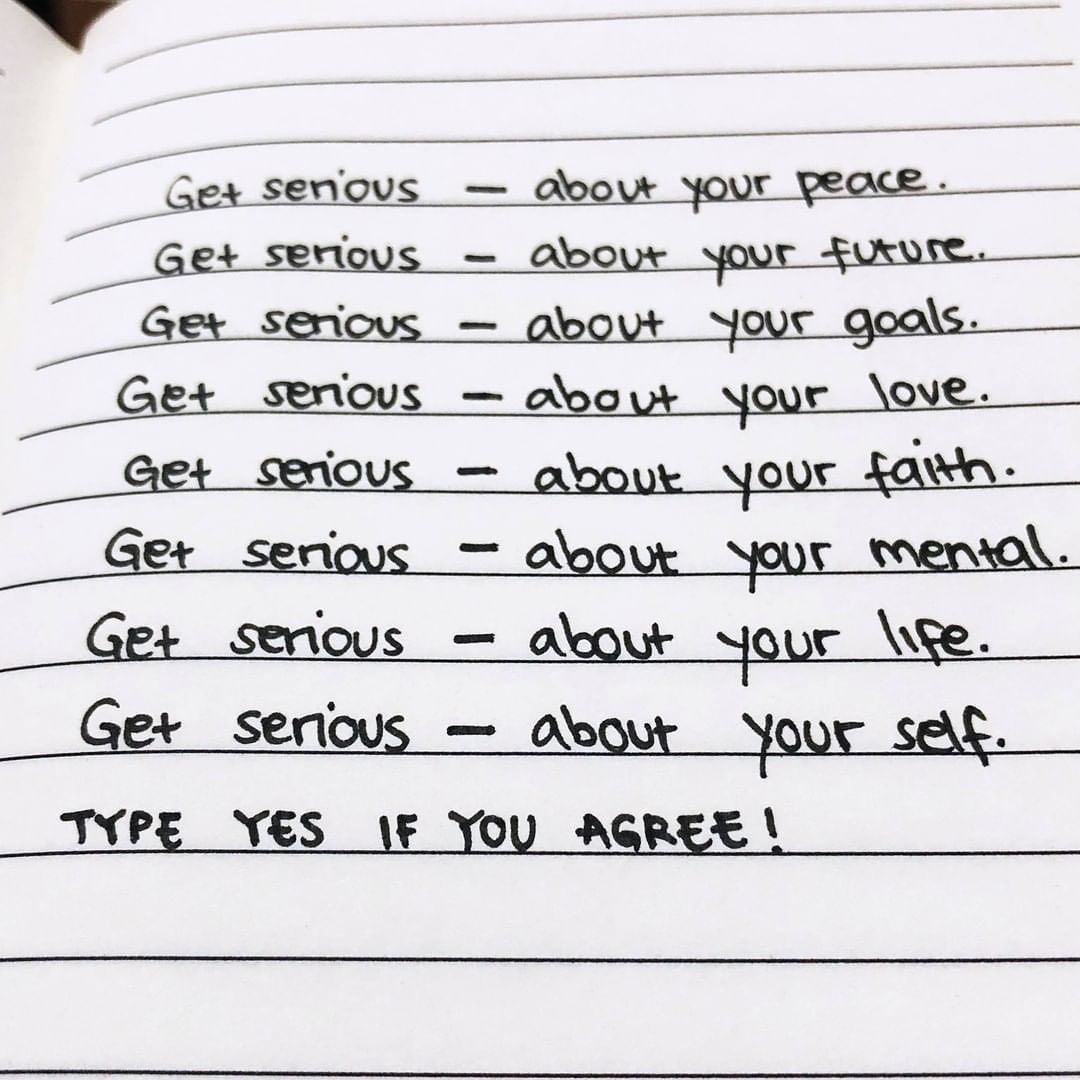 Get serious — about your peace.
Get serious — about your future.
Get serious — about your goals.
Get serious — about your love.
Get serious — about your faith.
Get serious — about your mental.
Get serious — about your life.
Get serious — about your self.
TYPE YES IF YOU AGREE!